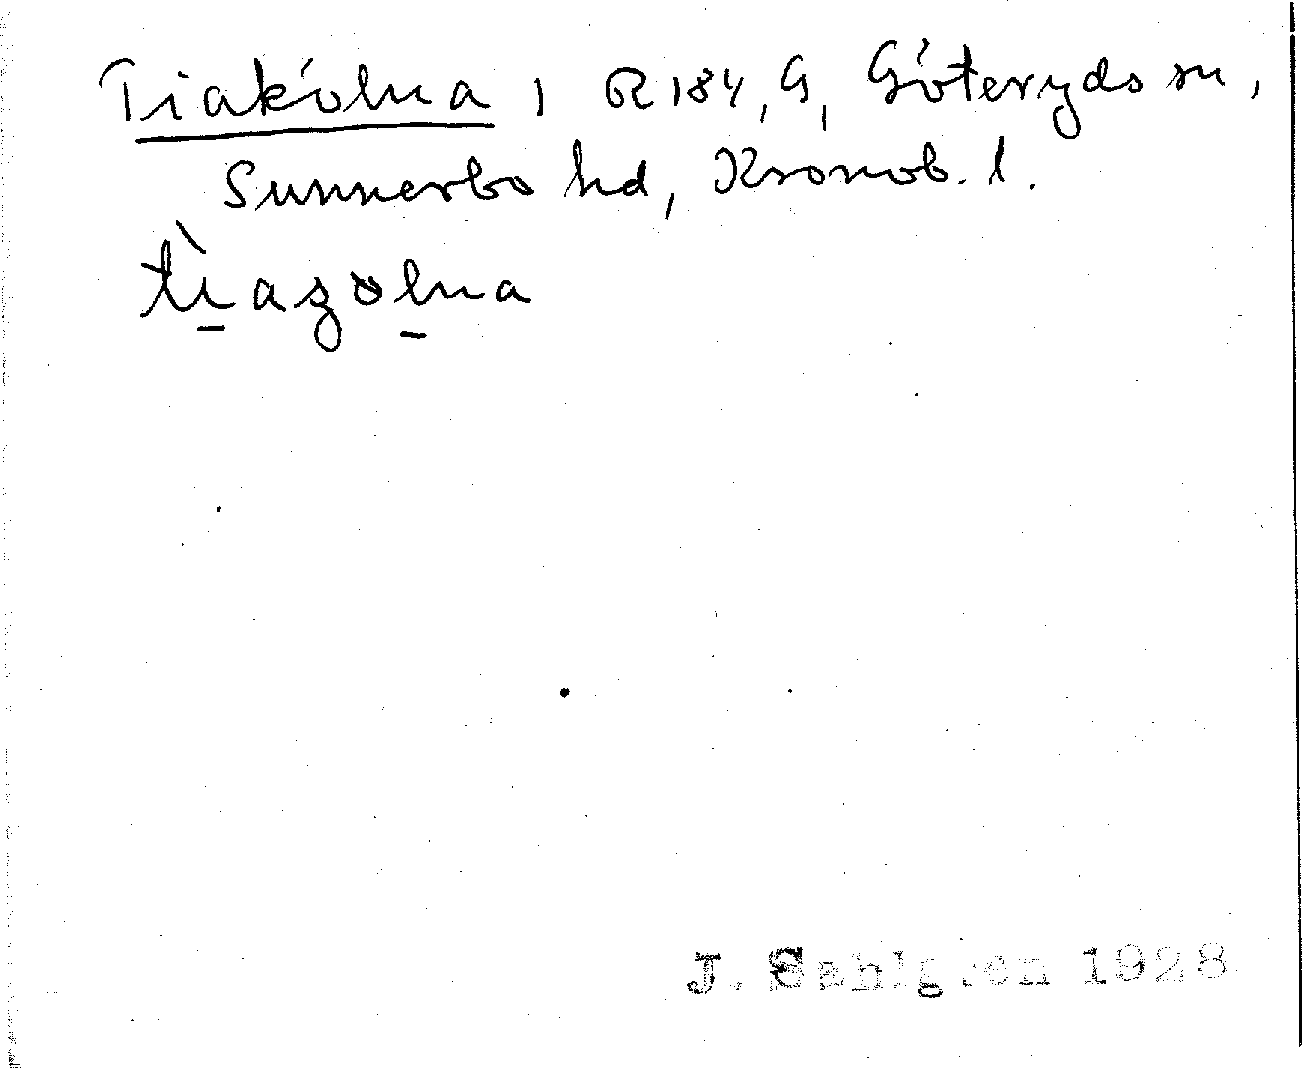 Tiakölna, R 184, G, Göteryds sn,
Sunnerbo hd, Kronob. l.
tìazölna
J. Sahlgren 1928